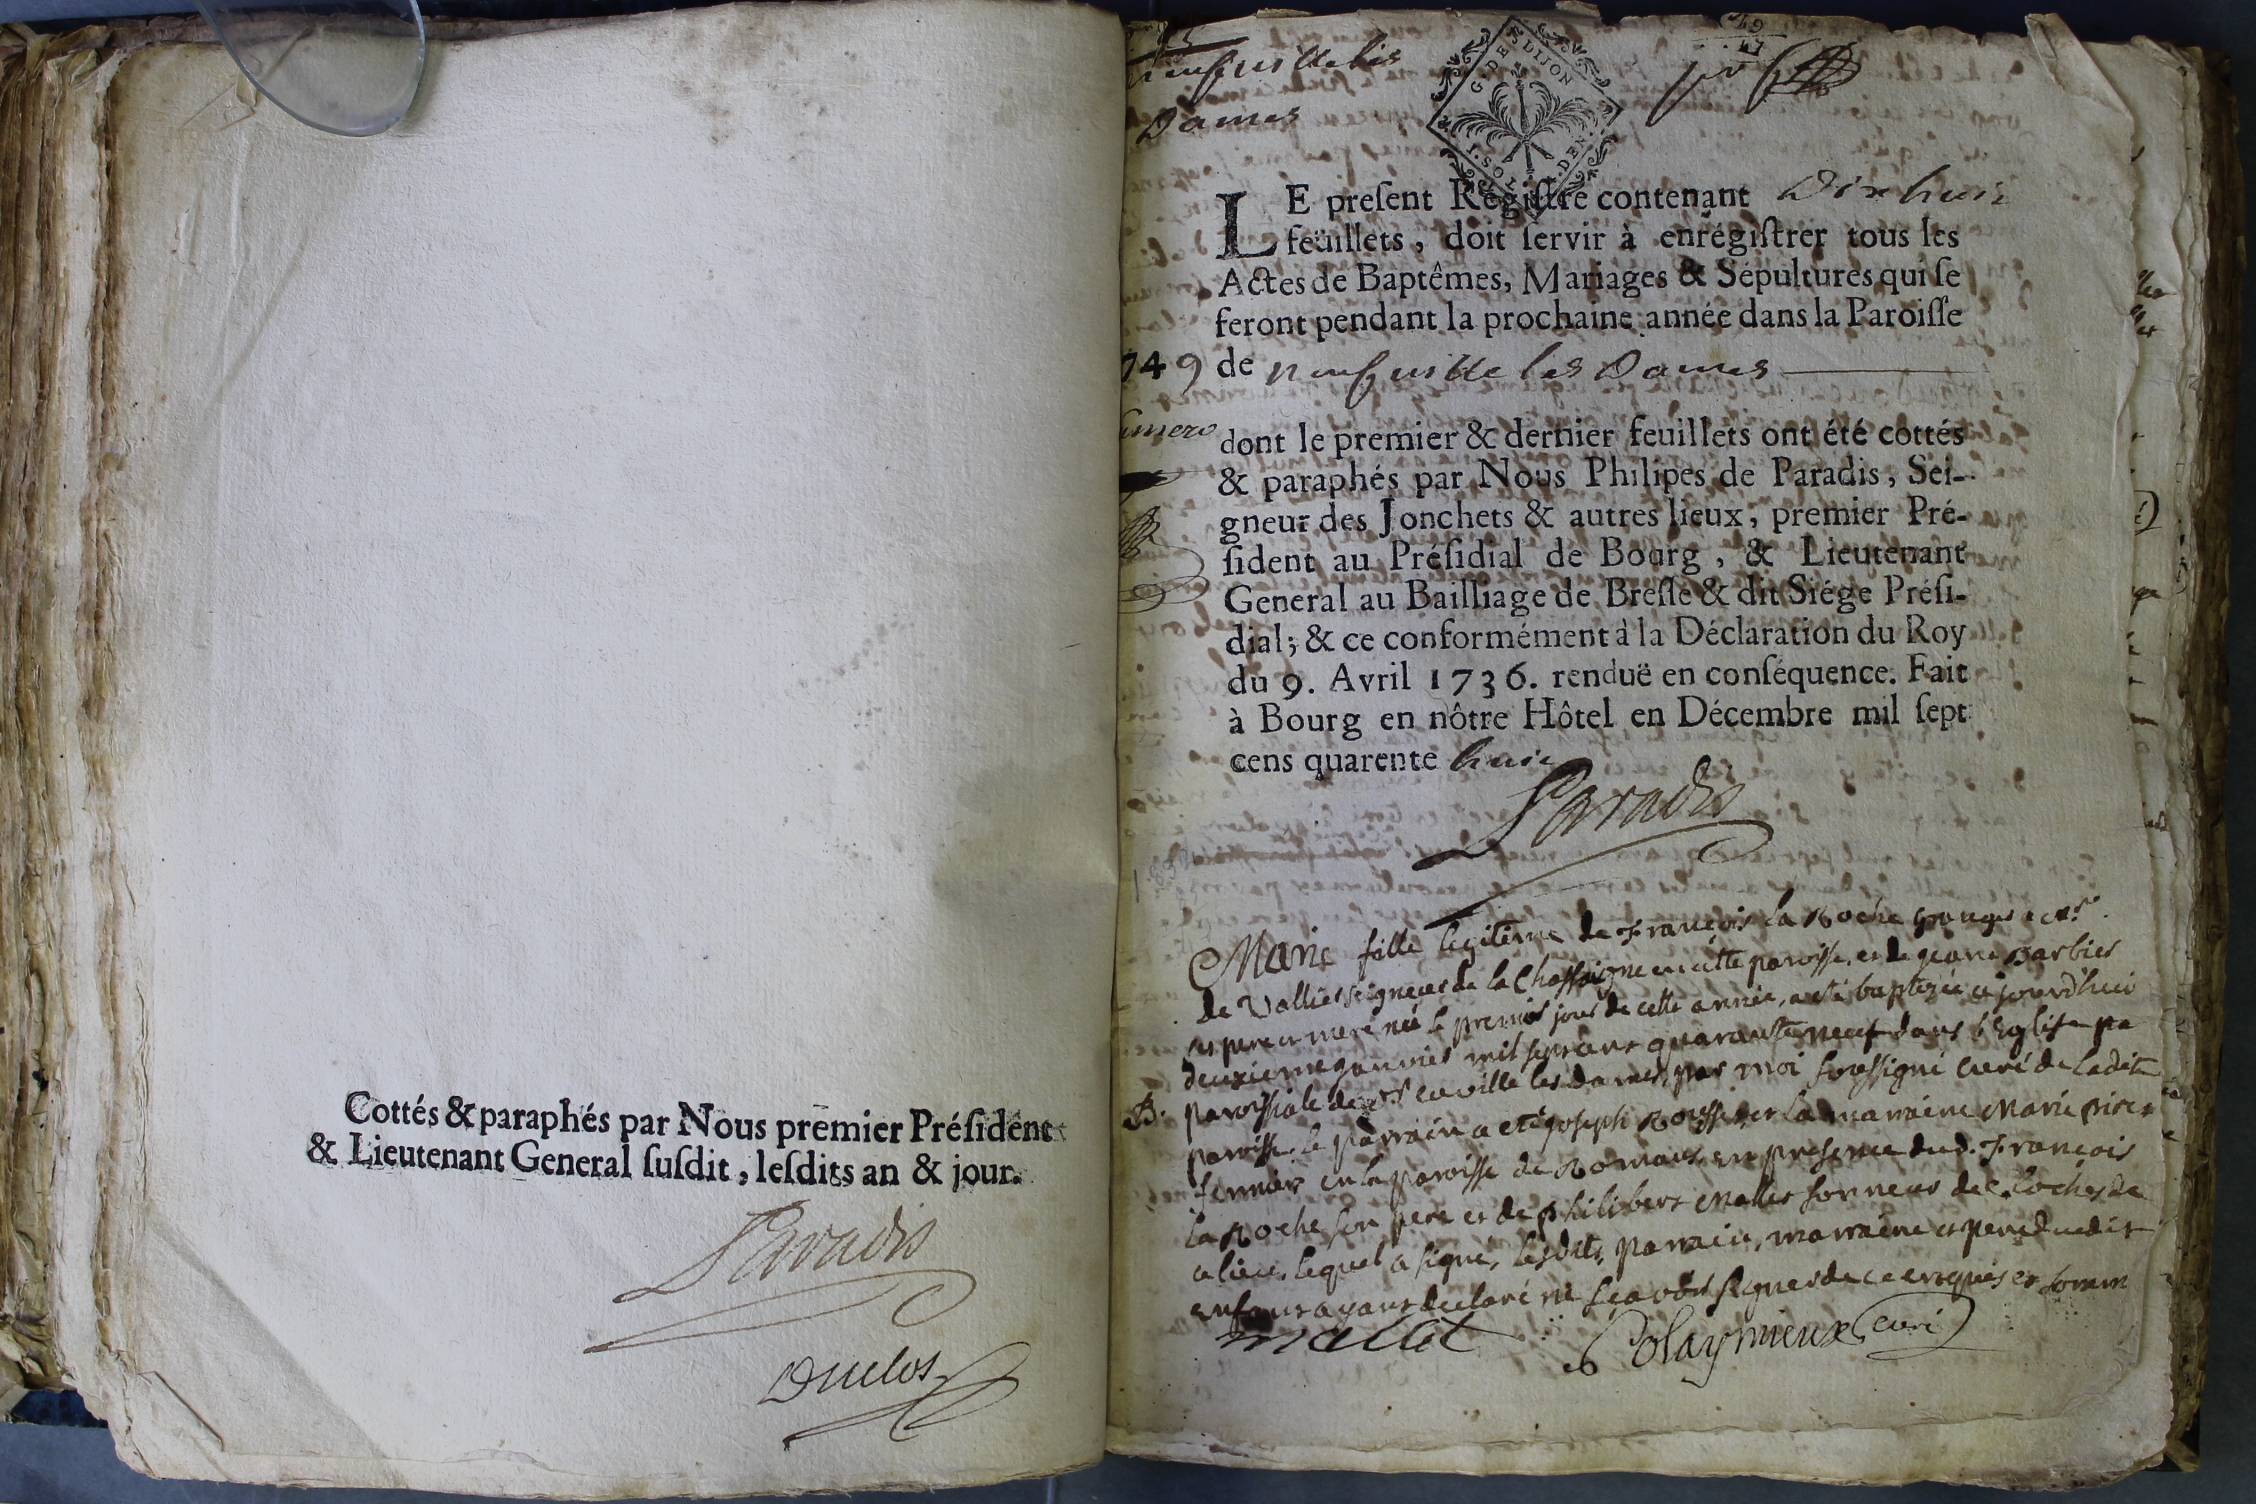 Cottés & paraphés par Nous premier Préſident
& Lieutenant General ſuſdit, leſdits an & jour.
Paradis
Duclos
neufuille les
Dames
G. DE DIJON
LE preſent Regiſtre contenant Dix huit
feüillets, doit ſervir à enrégiſtrer tous les
Actes de Baptêmes, Mariages & Sépultures qui ſe
feront pendant la prochaine année dans la Paroiſſe
749 de neufuille les Dames
dont le premier & dernier feuillets ont été cottés
& paraphés par Nous Philipes de Paradis, Sei-
gneur des Jonchets & autres lieux, premier Pré-
ſident au Préſidial de Bourg, & Lieutenant
General au Bailliage de Breſſe & dit Siége Préſi-
dial; & ce conformément à la Déclaration du Roy
du 9. Avril 1736. renduë en conſéquence. Fait
à Bourg en nôtre Hôtel en Décembre mil ſept
cens quarente huit
Paradis
Marie fille legitime de François La Roche
de Vallier seigneur de la Chassaigne en cette paroisse, et de Barbier
ses pere et mere née le premier jour de cette année, a été baptizée ce jourd'hui
deuxieme janvier mil sept cent quarante neuf dans l'Eglise pa
B. paroissiale de Neuville les dames, par moi soussigné curé de ladite
paroisse, le parrain a été joseph et la marraine Marie
en la paroisse de Romans, en presence dud. François
La Roche son pere et de philibert Mallet sonneur de cloches de
ce lieu, lequel a signé, lesdits, parrain, marraine et pere dudit
enfant ayant declaré ne sçavoir signer de ce enquis et somm
mallet
Colaymieux curé